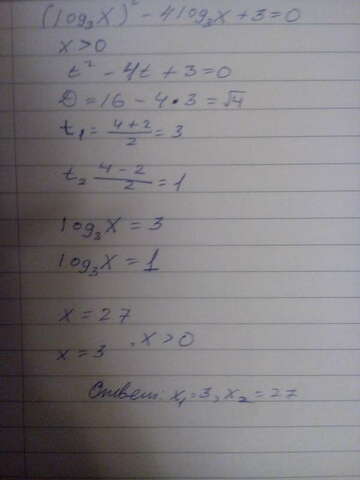 (log₃x)² - 4log₃x + 3 = 0
x > 0
t² - 4t + 3 = 0
D = 16 - 4 • 3 = √4
t₁ = (4+2)/2 = 3
t₂ (4-2)/2 = 1
log₃x = 3
log₃x = 1
x = 27
x = 3 , x > 0
Ответ: x₁ = 3, x₂ = 27